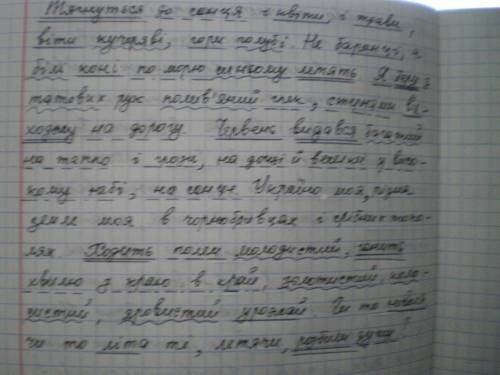 Тягнуться до сонця і квіти, і трави,
віти кучеряві, гори голубі. Не баранці, а
білі коні по морю синьому летять. Я беру з
татових рук полив'яний глек, стернами ви-
ходжу на дорогу. Червень видався багатий
на тепло і грози, на дощі й веселки у висо-
кому небі, на сонце. Україно моя, рідна
земле моя в чорнобривцях і срібних топо-
лях. Ходить полем молодистий, гонить
хвилю з краю в край, золотистий, коло-
систий, ядронистий урожай. Чи то
чи то літа те, летячи,